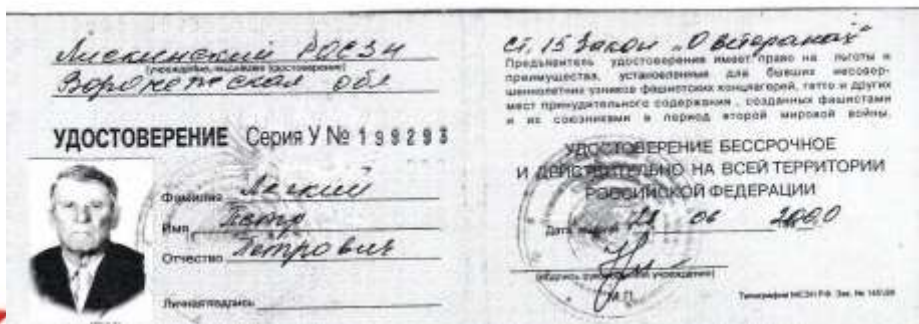 Лискинский РОСЗН
(учреждение, выдавшее удостоверение)
Воронежская обл
УДОСТОВЕРЕНИЕ Серия У № 198293
Фамилия Легкий
Имя Петр
Отчество Петрович
Личная подпись
ст. 15 Закон „О ветеранах"
Предъявитель удостоверения имеет право на льготы и
преимущества, установленные для бывших несовер-
шеннолетних узников фашистских концлагерей, гетто и других
мест принудительного содержания, созданных фашистами
и их союзниками в период второй мировой войны.
УДОСТОВЕРЕНИЕ БЕССРОЧНОЕ
И ДЕЙСТВИТЕЛЬНО НА ВСЕЙ ТЕРРИТОРИИ
РОССИЙСКОЙ ФЕДЕРАЦИИ
Дата выдачи 06 2000
(подпись руководителя учреждения)
М.П.
Типография МСЗН РФ. Зак. №